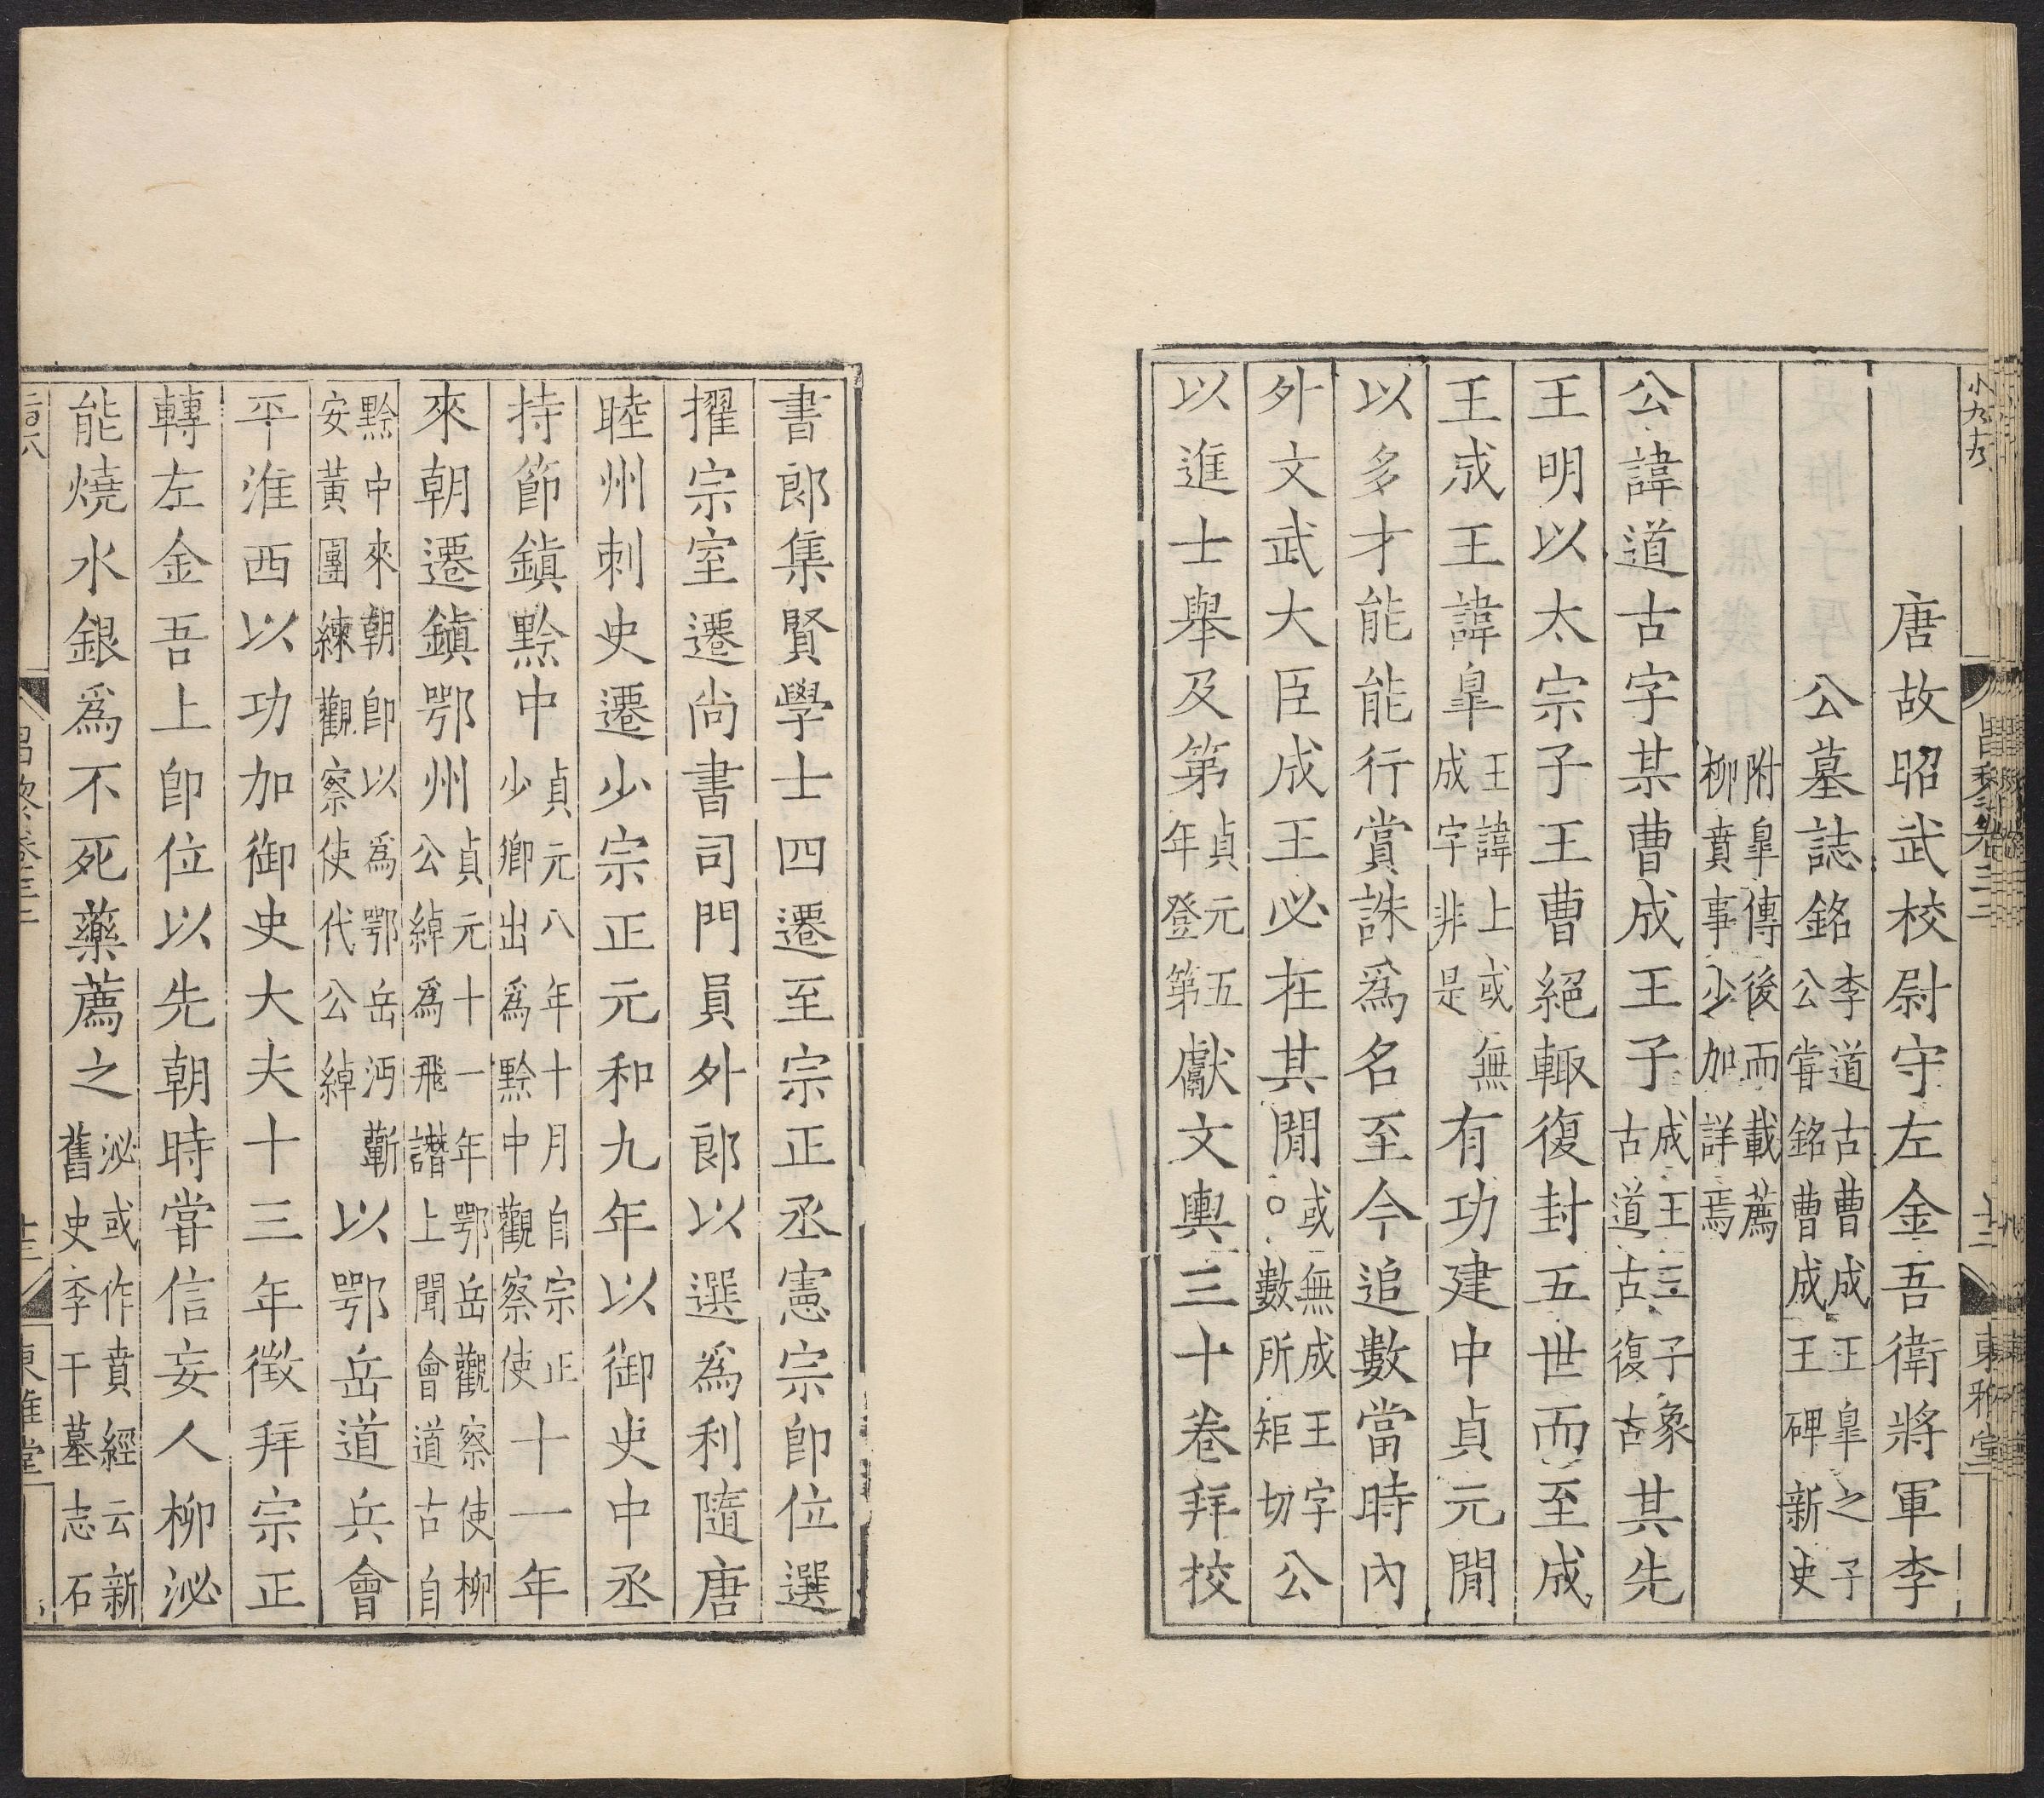 唐故昭武校尉守左金吾衛將軍李
公墓誌銘李道古曹成王皐之子公嘗銘曹成王碑新史
附皐傳後而載薦柳賁事少加詳焉
公諱道古字某曹成王子成王三子象古道古復古其先
王明以太宗子王曹絕輒復封五世而至成
王成王諱皐王諱上或無成字非是有功建中貞元閒
以多才能能行賞誅爲名至今追數當時內
外文武大臣成王必在其閒或無成王字○數所矩切公
以進士舉及第貞元五年登第獻文輿三十卷拜校
書郎集賢學士四遷至宗正丞憲宗卽位選
擢宗室遷尚書司門員外郎以選爲利隨唐
睦州刺史遷少宗正元和九年以御史中丞
持節鎭黔中貞元八年十月自宗正少卿出爲黔中觀察使十一年
來朝遷鎭鄂州貞元十一年鄂岳觀察使柳公綽爲飛譖上聞會道古自
黔中來朝卽以爲鄂岳沔蘄安黃團練觀察使代公綽以鄂岳道兵會
平淮西以功加御史大夫十三年徵拜宗正
轉左金吾上卽位以先朝時嘗信妄人柳泌
能燒水銀爲不死藥薦之泌或作賁經云新舊史李干墓志石
昌黎卷三
十三
東雅堂